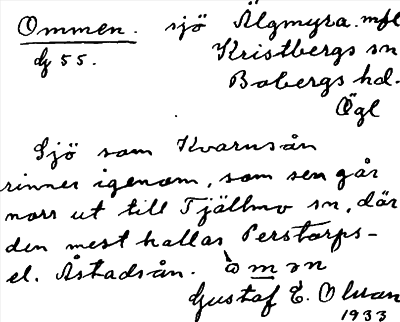 Ommen. sjö Älgmyra. mfl
dj 55. Kristbergs sn
Bobergs hd.
Ögl
Sjö som Kvarnsån
rinner igenom, som sen går
norr ut till Tjällmo sn, där
den mest kallas Perstorps-
el. Åstadsån.
Gustaf E. Olsson
1933